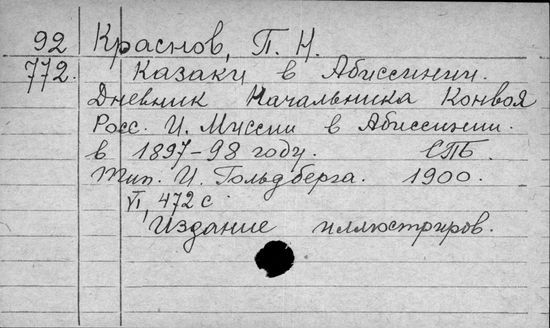 92 Краснов, П. Н.
772. Казаки в Абиссинии.
Дневник Начальника Конвоя
Росс. И. Миссии в Абиссинии.
в 1897-98 году. СПБ.
Тип. И. Гольдберга. 1900.
VI, 472 с
Издание иллюстриров.